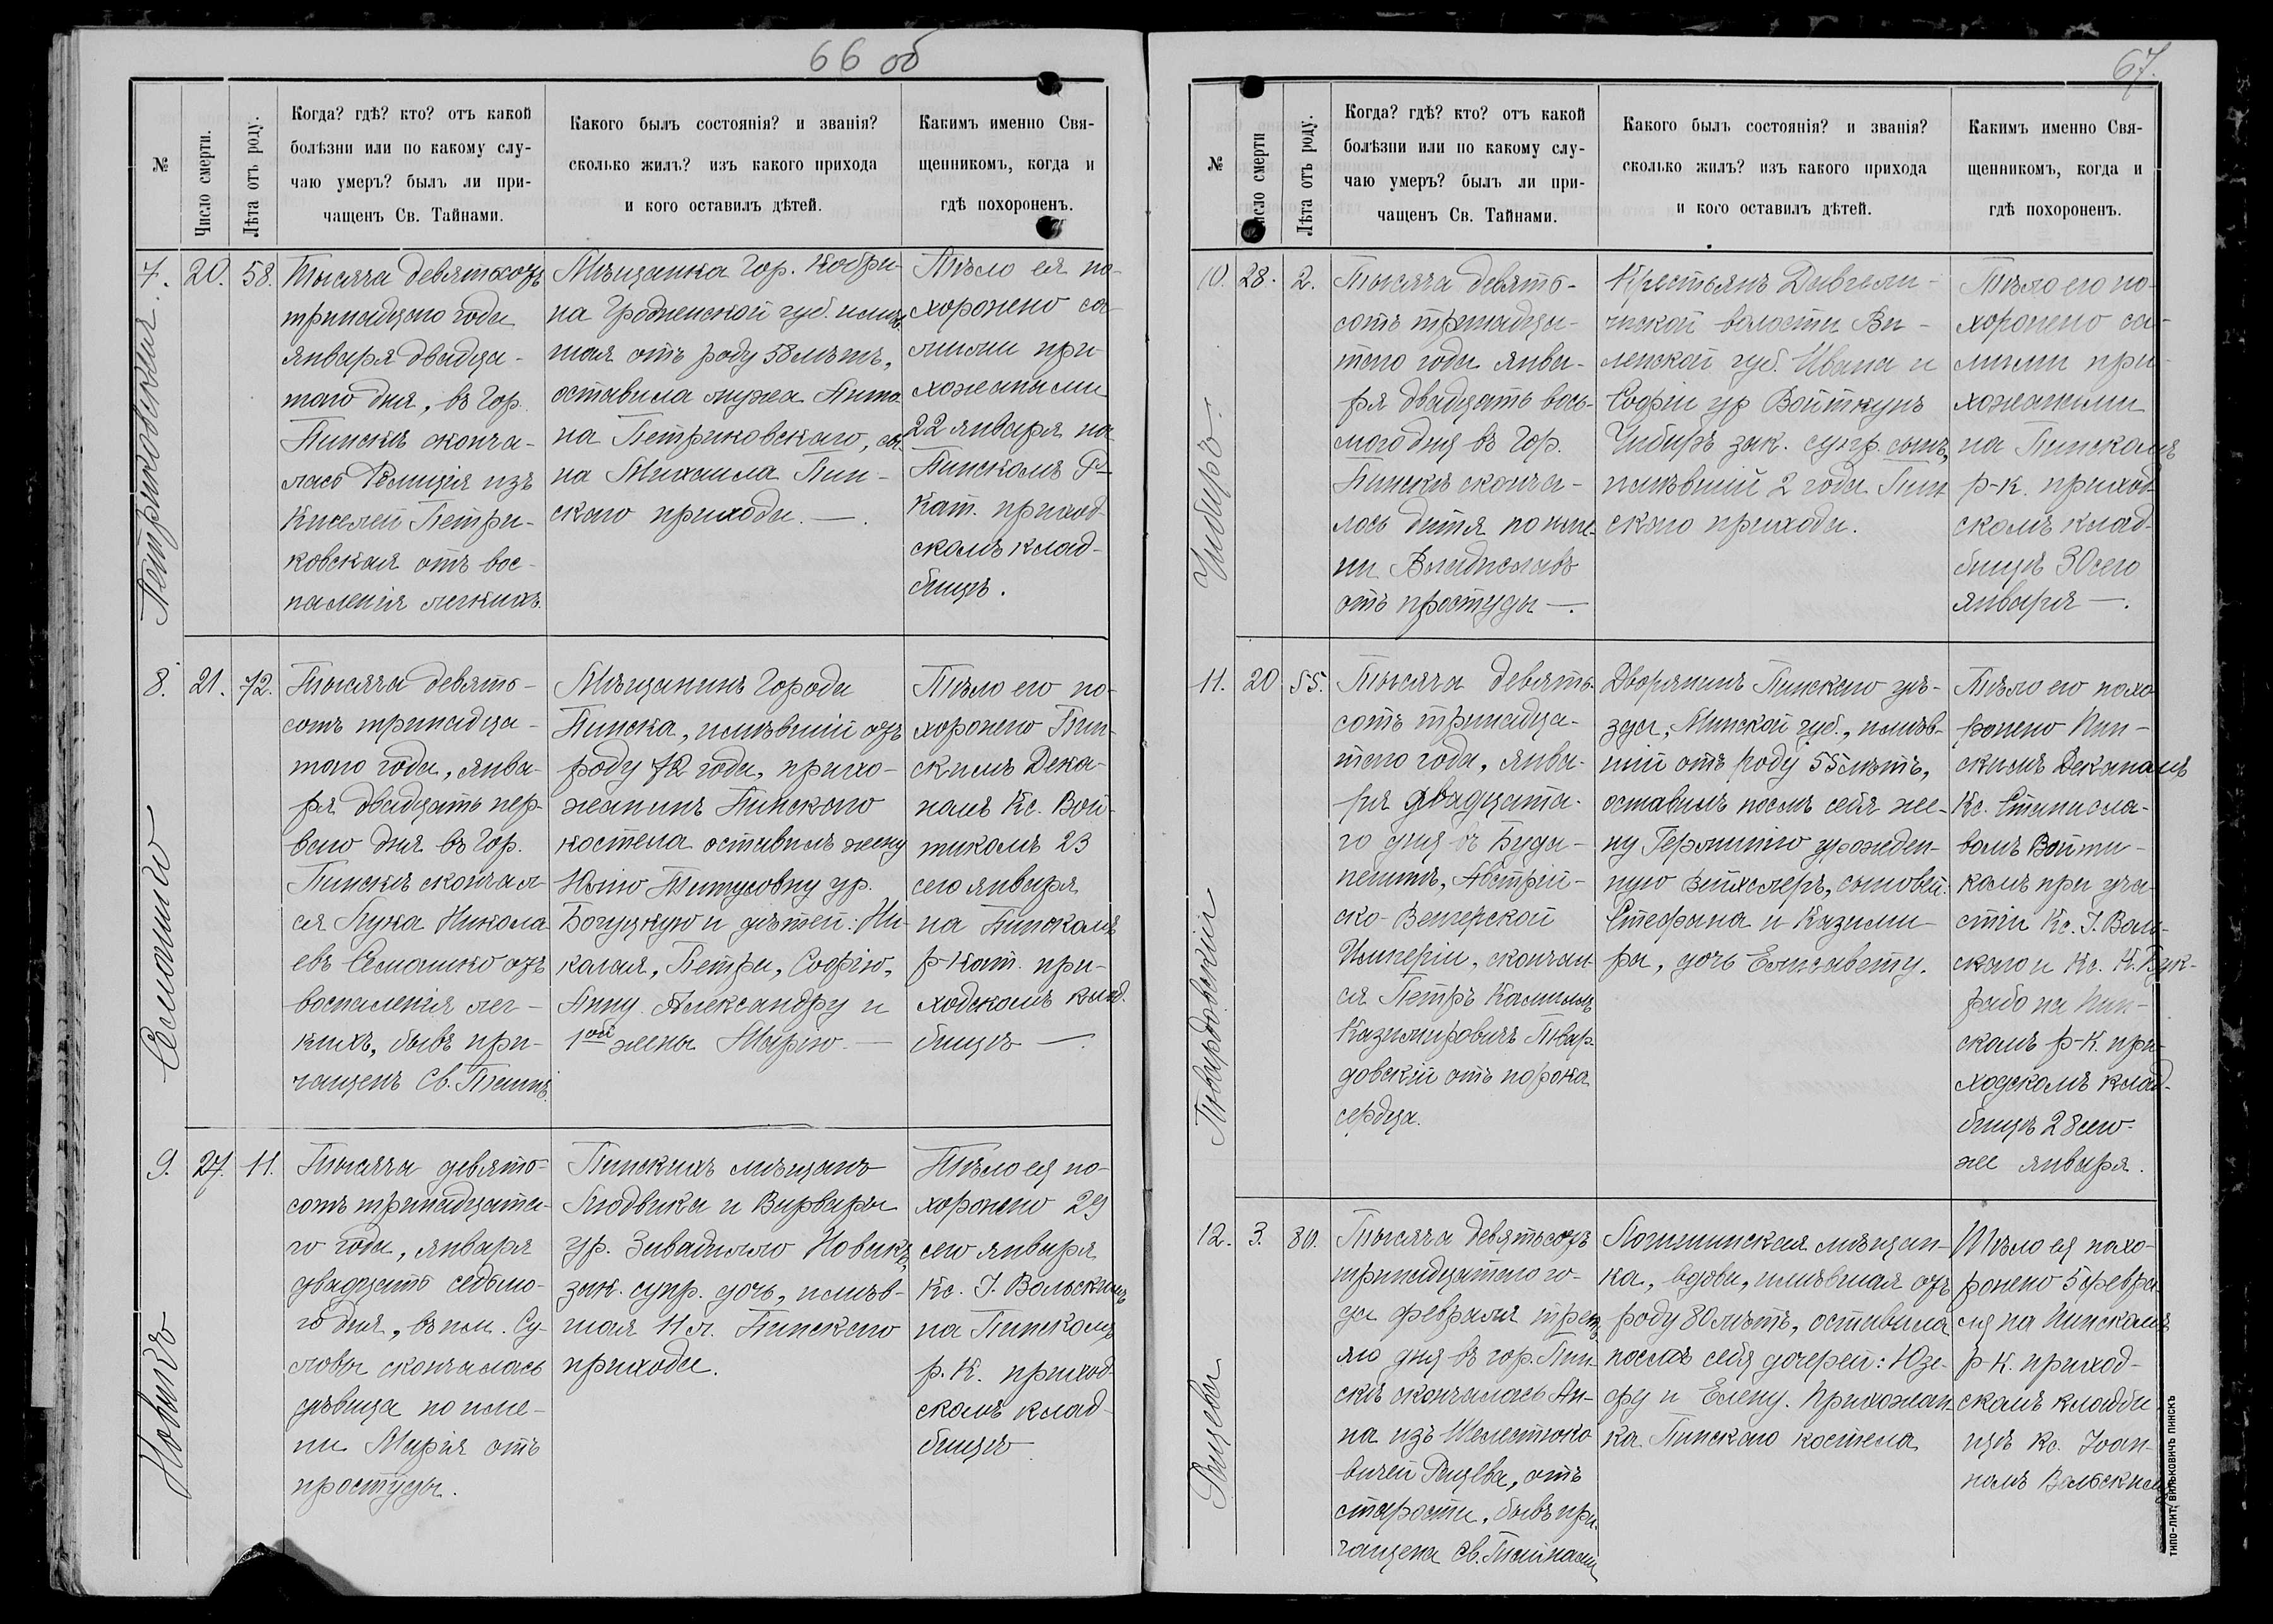 66 об
№
Число смерти.
Лѣта отъ роду.
Когда? гдѣ? кто? отъ какой
болѣзни или по какому слу-
чаю умеръ? былъ ли при-
чащенъ Св. Тайнами.
Какого былъ состоянія? и званія?
сколько жилъ? изъ какого прихода
и кого оставилъ дѣтей.
Какимъ именно Свя-
щенникомъ, когда и
гдѣ похороненъ.
7.
Петриковская.
20.
58.
Тысяча девятьсотъ
тринадцатаго года
Января двадца-
таго дня, въ Гор.
Пинскѣ сконча-
лась Фелиція изъ
Киселей Петри-
ковская отъ вос-
паленія легкихъ.
Мѣщанка Гор. Кобри-
на Гродненской губ. имѣв
шая отъ роду 58 лѣтъ,
оставила мужа Анто
на Петриковскаго, сы-
на Михаила Пин-
скаго прихода.
Тѣло ея по-
хоронено са-
мими при-
хожанами
22 января на
Пинскомъ Р-
Кат. приход
скомъ клад-
бищѣ.
8.
Семашко
21.
72.
Тысяча девять-
сотъ тринадца-
таго года, янва-
ря двадцать пер-
ваго дня въ Гор.
Пинскѣ скончал-
ся Лука Никола
евъ Семашко отъ
воспаленія лег-
кихъ, бывъ при-
чащенъ Св. Тайнъ.
Мѣщанинъ Города
Пинска, имѣвшій отъ
роду 72 года, прихо-
жанинъ Пинскаго
костела оставилъ жену
Юлію Титусовну ур.
Богуцкую и дѣтей: Ни-
колая, Петра, Софію,
Анну, Александру и
1ой жены Марію.
Тѣло его по-
хоронено Пин-
скимъ Дека-
номъ Кс. Вой-
тикомъ 23
сего января
на Пинскомъ
р-Кат. при-
ходскомъ клад.
бищѣ
9.
Новикъ
27.
11.
Тысяча девять-
сотъ тринадцата-
го года, января
двадцать седьмо-
го дня, въ им. Су-
ловы скончалась
дѣвица по име-
ни Марія отъ
простуды.
Пинскихъ мѣщанъ
Людвика и Варвары
ур. Завадилло Новикъ,
зак. супр. дочь, имѣв-
шая 11 л. Пинскаго
прихода.
Тѣло ея по-
хоронено 29
сего января
Кс. І. Вольскимъ
на Пинскомъ
р. К. приход-
скомъ клад-
бищѣ
67.
№
Число смерти
Лѣта отъ роду.
Когда? гдѣ? кто? отъ какой
болѣзни или по какому слу-
чаю умеръ? былъ ли при-
чащенъ Св. Тайнами.
Какого былъ состоянія? и званія?
сколько жилъ? изъ какого прихода
и кого оставилъ дѣтей.
Какимъ именно Свя-
щенникомъ, когда и
гдѣ похороненъ.
10.
Чибиръ.
28.
2.
Тысяча девять-
сотъ тринадца-
таго года янва-
ря двадцать вось-
мого дня въ Гор.
Пинскѣ сконча-
лось дитя по име-
ни Владиславъ
отъ простуды
Крестьянъ Дивгели-
ской волости Ви-
ленской губ. Ивана и
Софіи ур Войткунъ
Чибиръ зак. супр. сынъ,
имѣвшій 2 года Пин
скаго прихода.
Тѣло его по-
хоронено са-
мими при-
хожанами
на Пинскомъ
р-к. приход-
скомъ клад-
бищѣ 30 сего
января
11.
Твардовскій
20
55.
Тысяча девять-
сотъ тринадца-
таго года, янва-
ря двадцата-
го дня въ Буда-
пештѣ, Австрій-
ско-Венгерской
Имперіи, скончал
ся Петръ Камиллъ
Казимировичъ Твар-
довскій отъ порока
сердца.
Дворянинъ Пинскаго уѣ-
зда, Минской губ., имѣв-
шій отъ роду 55 лѣтъ,
оставилъ послѣ себя же-
ну Геронимію урожден-
ную Вейхслеръ, сыновей
Стефана и Казими-
ра, дочь Елисавету.
Тѣло его похо
ронено Пин-
скимъ Деканомъ
Кс. Станисла-
вомъ Войти-
комъ при уча-
стіи Кс. І. Воль-
скаго и Кс. К. Бук-
рабо на Пин-
скомъ р-К. при-
ходскомъ клад-
бищѣ 28 сего-
же января.
12.
Рацева
3.
80.
Тысяча девятьсотъ
тринадцатаго го-
да февраля треть
яго дня въ гор. Пин-
скѣ скончалась Ан-
на изъ Шелестюко
вичей Рацева, отъ
старости, бывъ при-
чащена Св. Тайнами
Логишинская мѣщан-
ка, вдова, имѣвшая отъ
роду 80 лѣтъ, оставила
послѣ себя дочерей: Юзе-
фу и Елену. Прихожан-
ка Пинскаго костела
Тѣло ея похо-
ронено 5 февра-
ля на Пинскомъ
р К. приход-
скомъ кладби
щѣ Кс. Іоан-
номъ Вольскимъ
ТИПО-ЛИТ. ВИЛЬКОВИЧЪ ПИНСКЪ